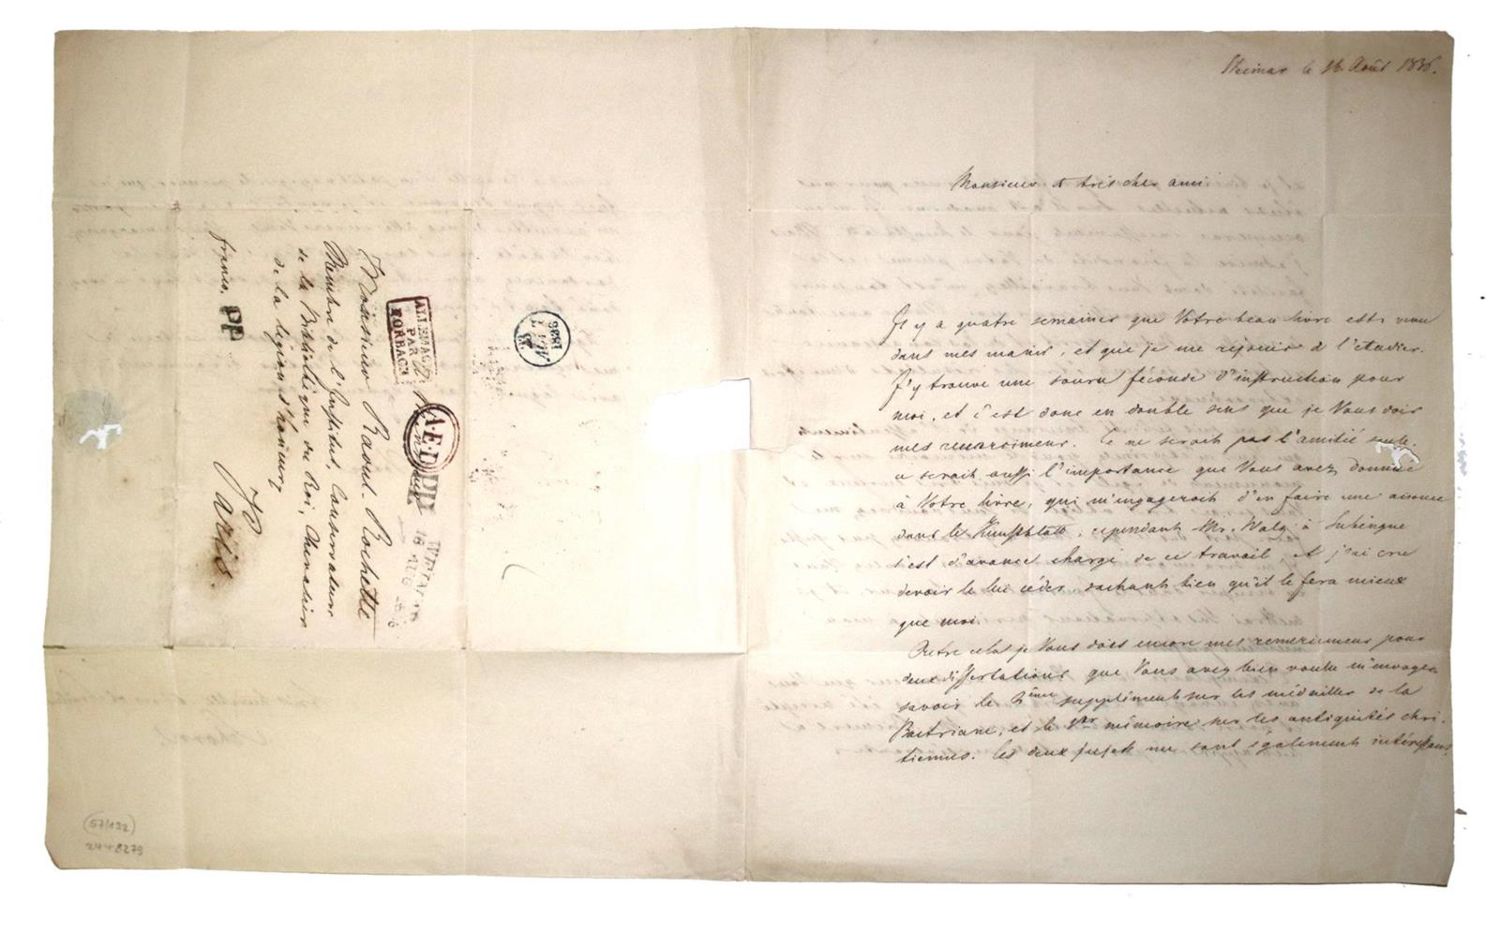 Weimar le 16 Août 1836.
Monsieur et très cher ami
Il y a quatre semaines que Votre beau livre est venu
dans mes mains, et que je me rejouis à l'etudier.
J'y trouve une source féconde d'instruction pour
moi, et c'est donc en double sens que je Vous dois
mes remercimens. Ce ne serait pas l'amitié seule,
ce serait aussi l'importance que Vous avez donnée
à Votre livre, qui m'engageroit d'en faire une annonce
dans le Kunstblatt, cependant Mr. Walz à Tubingue
s'est d'avance chargé de ce travail et j'ai cru
devoir le lui céder sachant bien qu'il le fera mieux
que moi.
Outre cela je Vous dois encore mes remercimens pour
deux dissertations que Vous avez bien voulu m'envoyer,
savoir le 2ème supplément sur les médailles de la
Bactriane, et le 1er mémoire sur les antiquités chré-
tiennes. Les deux sujets me sont également intéressans
à Monsieur Raoul-Rochette
Membre de l'Institut, Conservateur
de la Bibliothèque du Roi, Chevalier
de la légion d'honneur,
Paris.
franco.
PP
ALLEMAGNE
PAR
FORBACH
A.E.D.
WEIMAR
16 AUG
1836
(57/132)